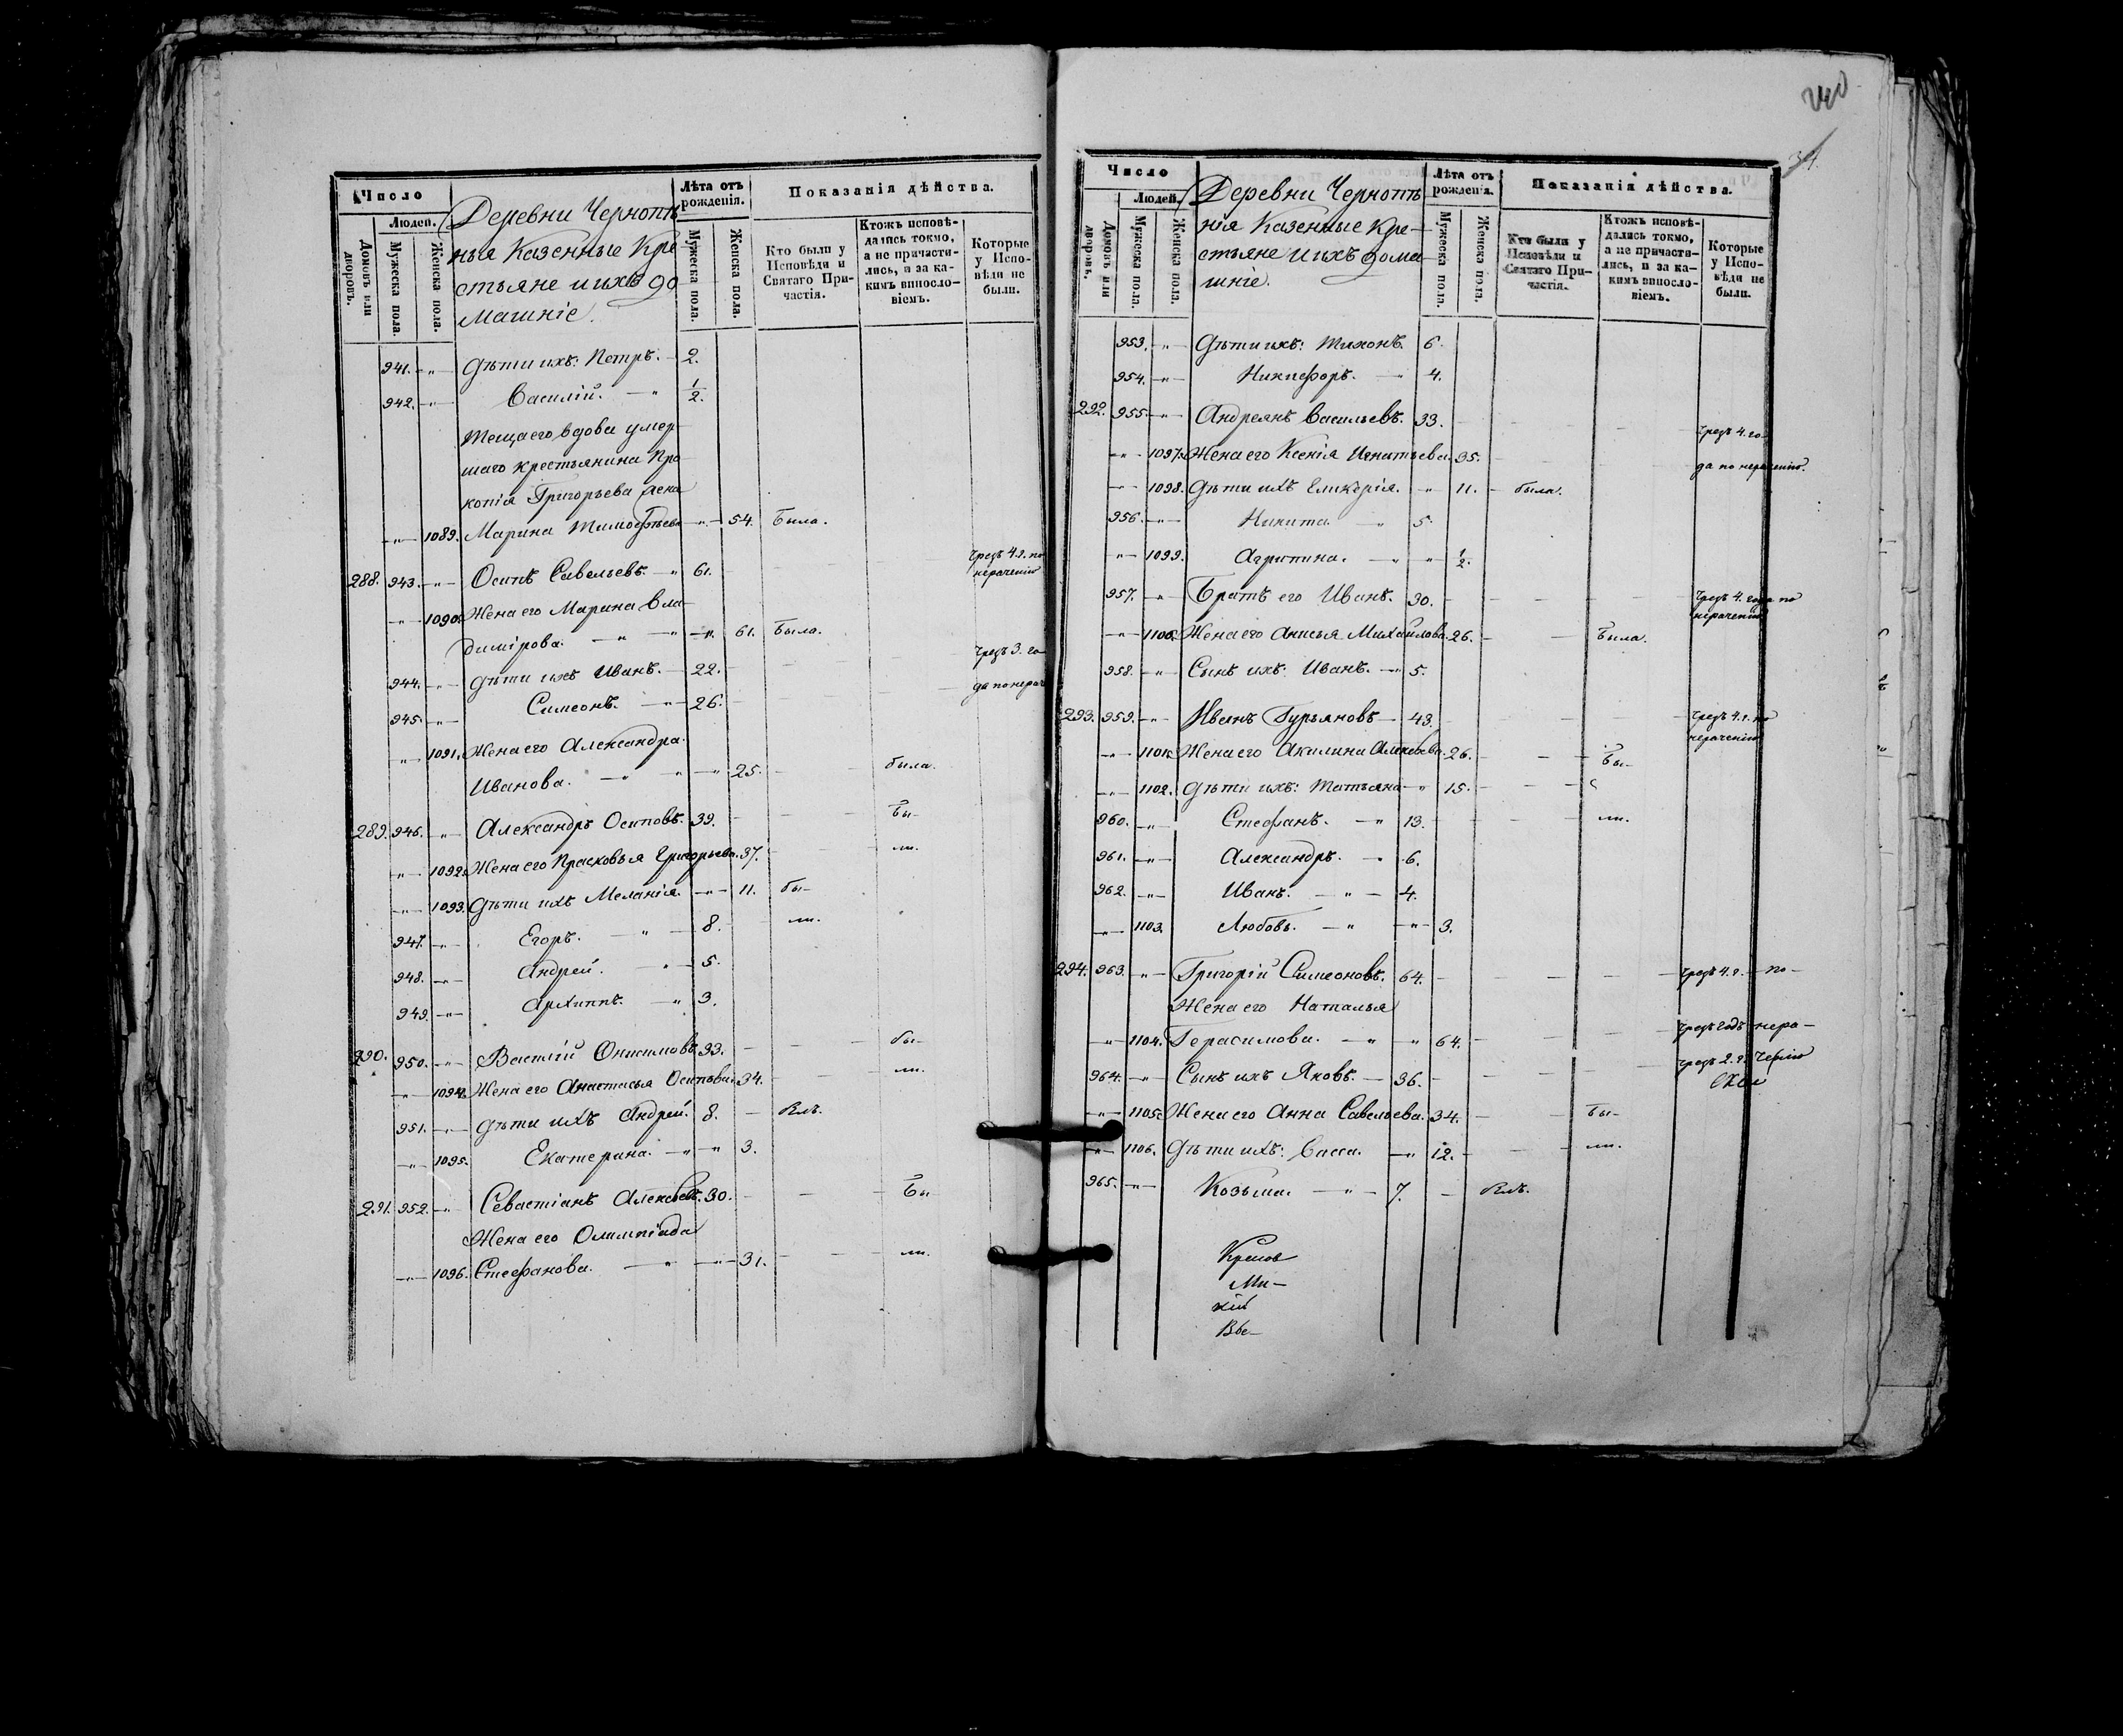 240
34.
Число
Людей.
Домовъ или дворовъ.
Мужеска пола.
Женска пола.
Деревни Чернопѣ
нья Казенные Кре
стьяне и ихъ до
машніе.
Лѣта отъ рожденія.
Мужеска пола.
Женска пола.
Показанія дѣйства.
Кто были у Исповѣди и Святаго Причастія.
Ктожъ исповѣ-
дались токмо,
а не причасти-
лись, и за ка-
кимъ винosло-
віемъ.
Которые
у Испо-
вѣди не
были.
941. -"- Дѣти ихъ: Петръ. - 2.
942. -"- Василій. - " 1/2.
Теща его вдова умер
шаго крестьянина Про
копія Григорьева жена
-"- 1089. Марина Тимофѣева -"- 54. Была.
288. 943. -"- Осипъ Савельевъ. -" 61. - - - чрезъ 4. г. по
нераченію
-"- 1090. Жена его Марина Вла-
димірова. -" -" -"- 61. Была.
944. -"- Дѣти ихъ Иванъ. - 22. - - - чрезъ 3. го-
945. -"- Симеонъ. -"- 26. - - - да по нерач
-"- 1091. Жена его Александра
Иванова. -" " -"- 25. - - была.
289. 946. -"- Александръ Осиповъ. 39. - - Бы-
-"- 1092. Жена его Прасковья Григорьева. 37. - - ли.
-"- 1093. Дѣти ихъ Меланія. -"- 11. бы-
947. -"- Егоръ. -" - 8. - ли.
948. -"- Андрей. " - 5.
949. -"- Архиппъ. -" 3.
290. 950. -"- Василій Онисимовъ. 33. - - - бы-
-"- 1094. Жена его Анастасья Осипова. 34. - - ли.
951. -"- Дѣти ихъ Андрей. 8. - Былъ.
-"- 1095. Екатерина. -" -" 3.
291. 952. -"- Севастіанъ Алексѣевъ. 30. - - - Бы
Жена его Олимпіада
-"- 1096. Стефанова. -" -"- 31. - - ли.
Число
Людей.
Домовъ или дворовъ.
Мужеска пола.
Женска пола.
Деревни Чернопѣ
нія Казенные Кре-
стьяне и ихъ дома
шніе.
Лѣта отъ рожденія.
Мужеска пола.
Женска пола.
Показанія дѣйства.
Кто были у
Исповѣди и
Святаго При-
частія.
Ктожъ исповѣ-
дались токмо,
а не причасти-
лись, и за ка-
кимъ винosло-
віемъ.
Которые
у Испо-
вѣди не
были.
953. -"- Дѣти ихъ: Тихонъ. 6.
954. -"- Никифоръ. -" 4.
292. 955. -"- Андреянъ Васильевъ. 33. - - - чрезъ 4. го-
-"- 1097. Жена его Ксенія Игнатьева. 35. - - - да по нераченію.
-"- 1098. Дѣти ихъ Гликерія. -" 11. - была.
956. -"- Никита. " 5.
-"- 1099. Агрипина. -" " 1/2.
957. -"- Братъ его Иванъ. 30. - - - - чрезъ 4. года по
нераченію
-"- 1100. Жена его Анисья Михайлова. 26. - - Была.
958. -"- Сынъ ихъ: Иванъ. -" 5.
293. 959. -"- Иванъ Гурьяновъ - 43. - - - чрезъ 4. г. по
нераченію
-"- 1101. Жена его Акилина Алексѣева. 26. - - - Бы-
-"- 1102. Дѣти ихъ: Татьяна -" 15. - - -
960. -"- Стефанъ. -" 13. - - - ли.
961. -"- Александръ. -" 6.
962. -"- Иванъ. -" - 4.
-"- 1103. Любовь. -" -"- 3.
294. 963. -"- Григорій Симеоновъ. 64. - - - - чрезъ 4. г. - по -
Жена его Наталья
-"- 1104. Герасимова. -" -" 64. - - - - чрезъ годъ нера-
964. -"- Сынъ ихъ Яковъ. - 36. - - - - чрезъ 2. г. ченію
-"- 1105. Жена его Анна Савельева. 34. - - Бы-
-"- 1106. Дѣти ихъ: Васса. -" 12. - - - ли.
965. -"- Козьма. -" - 7. - Былъ.
Ми-
Вве-